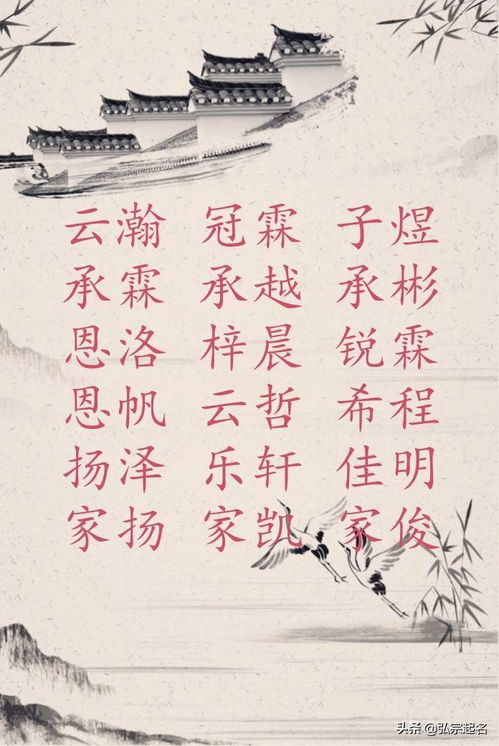 云瀚 冠霖 子煜
承霖 承越 承彬
恩洛 梓晨 锐霖
恩帆 云哲 希程
扬泽 乐轩 佳明
家扬 家凯 家俊
头条 @弘宗起名